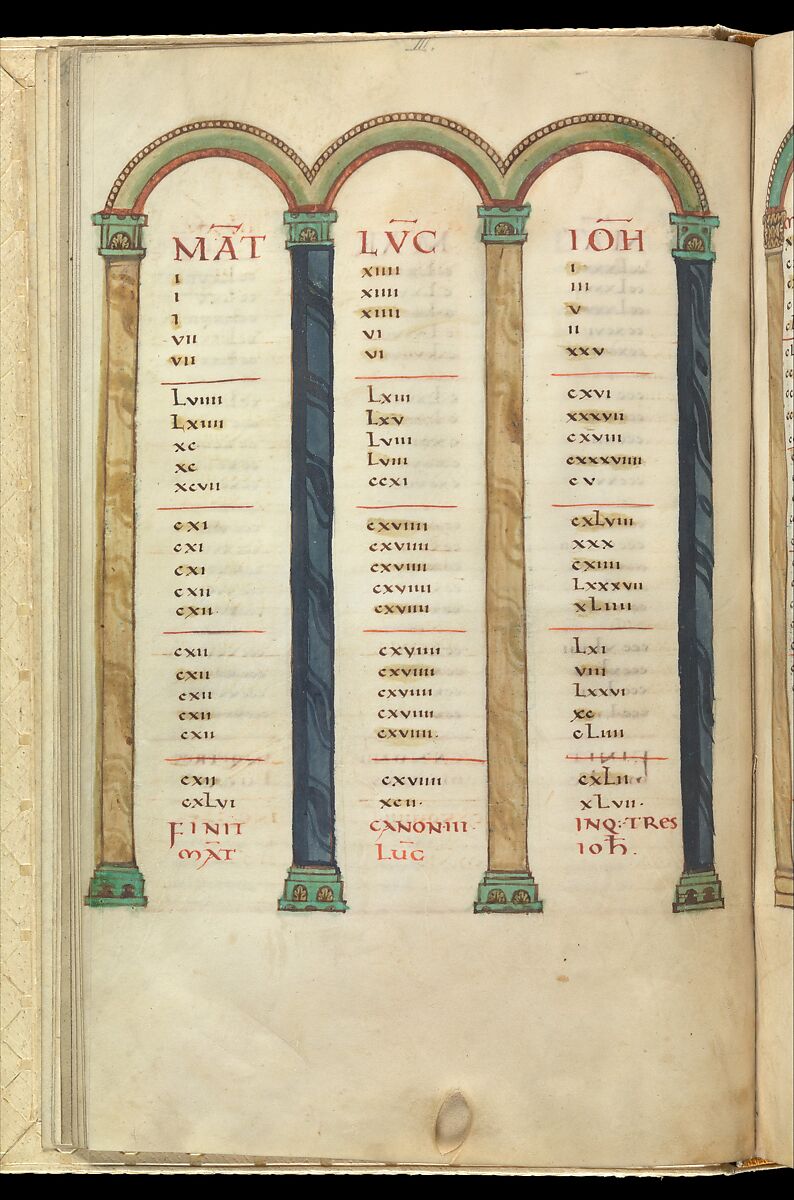 III.
MA̅T LV̅C IO̅H
I XIIII I
I XIIII III
I XIIII V
VII VI II
VII VI XXV
LVIIII LXIII CXVI
LXIIII LXV XXXVII
XC LVIII CXVIII
XC LVIII CXXXVIIII
XCVII CCXI CV
CXI CXVIIII CXLVIII
CXI CXVIIII XXX
CXI CXVIIII CXIIII
CXII CXVIIII LXXXVII
CXII· CXVIIII XLIIII
CXII CXVIIII LXI
CXII CXVIIII VIII
CXII CXVIIII LXXVI
CXII CXVIIII XC
CXII CXVIIII· CLIIII
CXII CXVIIII CXLII·
CXLVI XCII· XLVII·
FINIT CANON·III· INQ:TRES
MA̅T LU̅C IOħ.